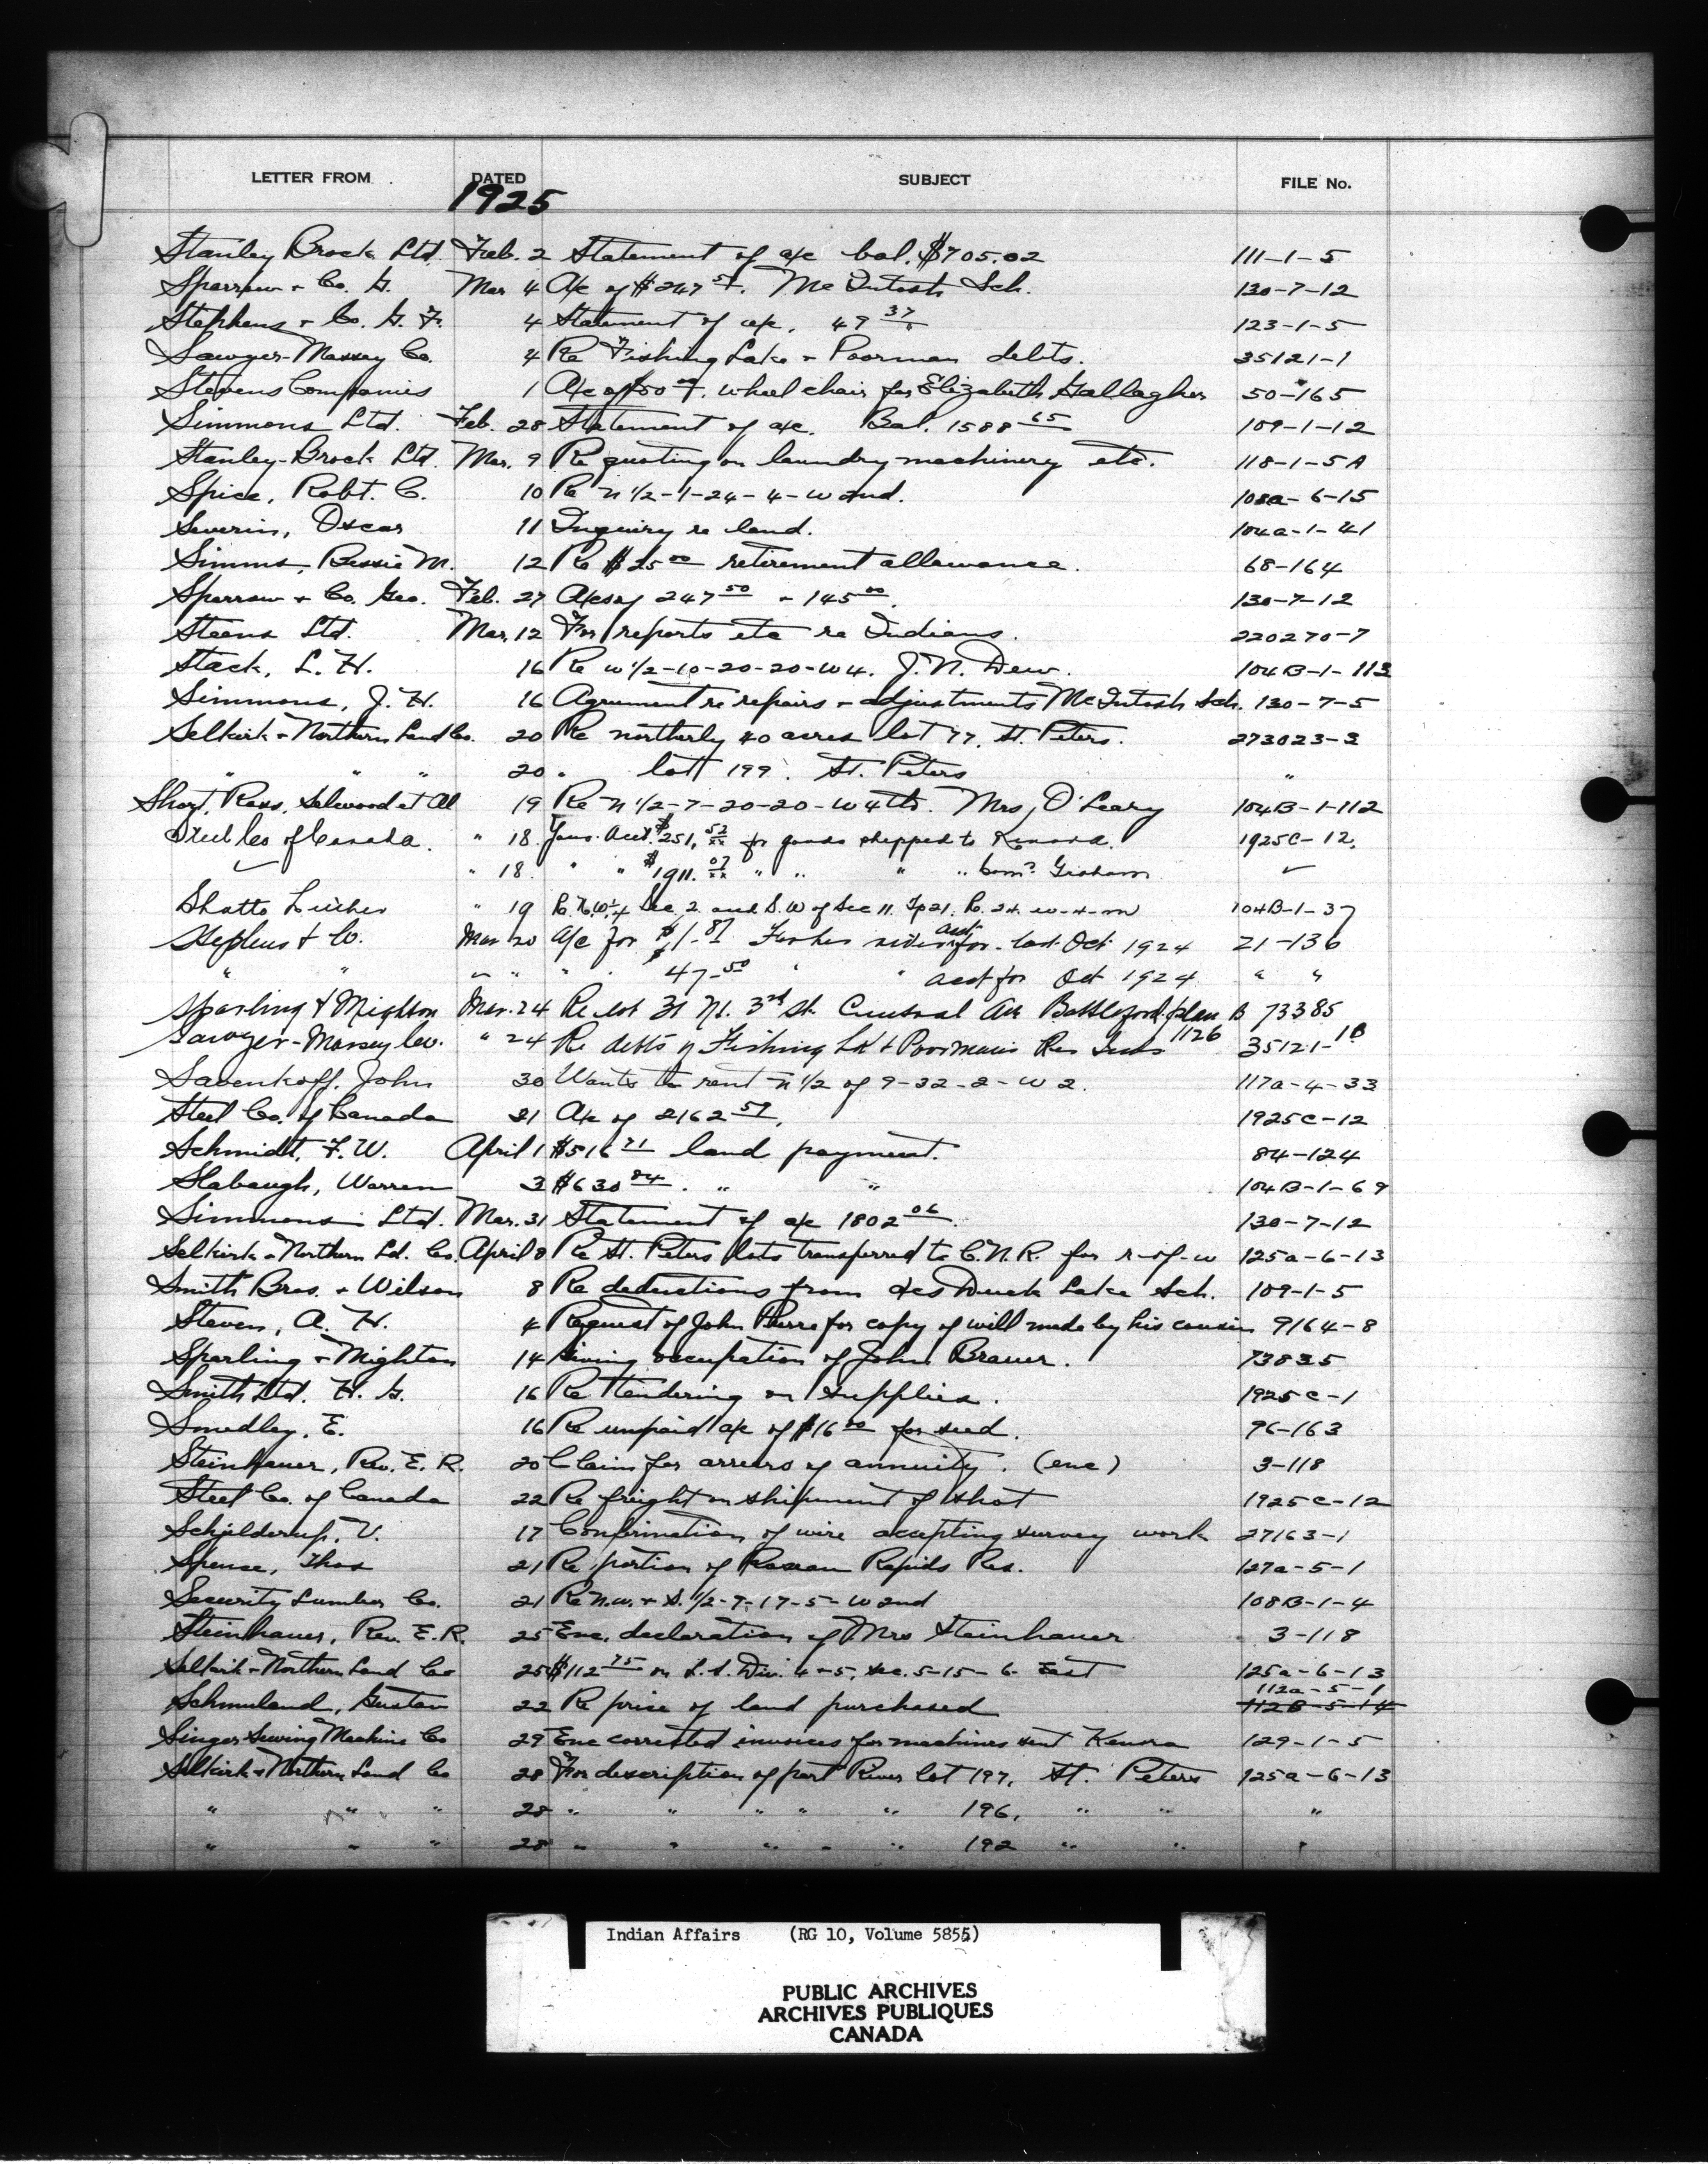 LETTER FROM DATED SUBJECT FILE No.
1925
Stanley Brock Ltd. Feb. 2 Statement of a/c bal. $705.02 111-1-5
Sparrow & Co. G. Mar 4 A/c of $247 McIntosh Sch. 130-7-12
Stephens & Co. G. F. 4 Statement of a/c. 49 37 123-1-5
Sawyer-Massey Co. 4 Re Fishing Lake & Poorman debts. 35121-1
Stevens Companies 1 A/c of $50 00. wheel chair for Elizabeth Gallagher 50-165
Simmons Ltd. Feb. 28 Statement of a/c. Bal. 1588 65 109-1-12
Stanley-Brock Ltd. Mar. 9 Re quoting on laundry machinery etc. 118-1-5A
Spice, Robt. C. 10 Re N 1/2-1-24-4-W 2nd. 108a-6-15
Severin, Oscar 11 Inquiry re land. 104a-1-41
Simms, Bessie M. 12 Re $25 00 retirement allowance. 68-164
Sparrow & Co. Geo. Feb. 27 A/cs of 247 50 & 145 00. 130-7-12
Steens Ltd. Mar. 12 For reports etc re Indians. 220270-7
Stack, L. H. 16 Re W 1/2-10-20-20-W4. J. N. Dew. 104B-1-113
Simmons, J. H. 16 Agreement re repairs & adjustments McIntosh Sch. 130-7-5
Selkirk & Northern Land Co. 20 Re northerly 40 acres lot 77, St. Peters. 273023-3
" " " 20 " lot 199. St. Peters "
Short, Ross, Selwood et Al 19 Re N 1/2-7-20-20-W 4th. Mrs. O'Leary 104B-1-112
Steel Co of Canada. " 18. Acct. $251. 52 for goods shipped to Kenora. 1925C-12.
" 18. " " $1911. 07 " " " " Comr Graham
Shatto " 19 Sec. 2 and S.W of Sec 11. Tp 21. R. 24. w-4-m 104B-1-37
Stephens & Co. Mar 20 A/c for $1-87 Fisher river acct for Oct 1924 21-136
" " " " " 47-50 " " acct for Oct 1924 " "
Sparling & Mighton Mar. 24 Re lot 31 N. 3rd St. Central Ave Battleford plan B 73385
Sawyer-Massey Co. " 24 Re debts of Fishing Lk & Poormans Res Inds 1126 35121-1B
Savenkoff, John 30 Wants to rent N 1/2 of 9-32-2-W 2. 117a-4-33
Steel Co. of Canada 31 A/c of 2162 59. 1925C-12
Schmidt, F. W. April 1 $516 71 land payment. 84-124
Slabaugh, Warren 3 $630 84. " " 104B-1-69
Simmons Ltd. Mar. 31 Statement of a/c 1802 06 130-7-12
Selkirk & Northern Ld. Co. April 8 Re St. Peters lots transferred to C.N.R. for r-of-w 125a-6-13
Smith Bros. & Wilson 8 Re deductions from a/cs Duck Lake Sch. 109-1-5
Steven, A. H. 4 Request of John Pierre for copy of will made by his cousin 9164-8
Sparling & Mighton 14 Giving occupation of John Brauer. 73835
Smith Ltd. H. G. 16 Re tendering on supplies. 1925C-1
Smedley, E. 16 Re unpaid a/c of $16 00 for seed. 96-163
Steinhauer, Rev. E. R. 20 Claim for arrears of annuity. (enc) 3-118
Steel Co. of Canada 22 Re freight on shipment of shot 1925C-12
Schjelderup, V. 17 Confirmation of wire accepting survey work 27163-1
Spence, Thos 21 Re portion of Roseau Rapids Res. 127a-5-1
Security Lumber Co. 21 Re N.W. & S. 1/2-7-17-5-W 2nd 108B-1-4
Steinhauer, Rev. E.R. 25 Enc. declaration of Mrs Steinhauer 3-118
Selkirk & Northern Land Co 25 $112 75 on L.S. Div. 4-5, sec. 5-15-6 East 125a-6-13
Schmuland, Gustav 22 Re price of land purchased 112a-5-1
112B-5-14
Singer Sewing Machine Co 29 Enc corrected invoices for machines sent Kenora 129-1-5
Selkirk & Northern Land Co 28 For description of part River lot 197, St. Peters 125a-6-13
" " " 28 " " " " " 196, " " "
" " " 28 " " " " " 192 " " "
Indian Affairs (RG 10, Volume 5855)
PUBLIC ARCHIVES
ARCHIVES PUBLIQUES
CANADA